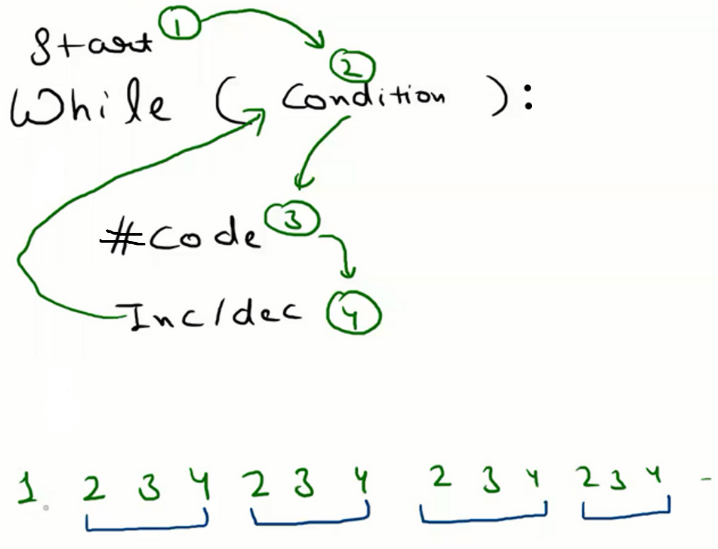 Start 1
2
While ( Condition ):
#Code 3
Inc/dec 4
1. 2 3 4 2 3 4 2 3 4 2 3 4 -